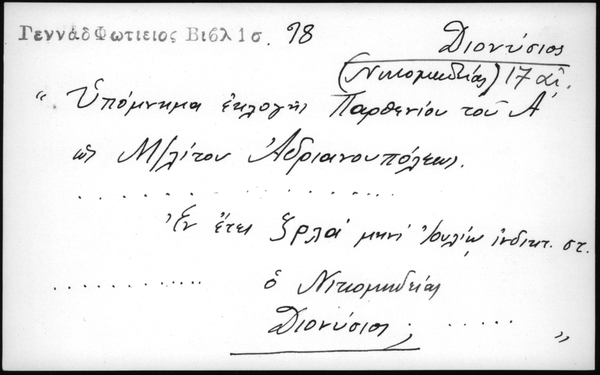 ΓεννάδΦωτιειος Βιβλ 1σ. 98
Διονύσιος
(Νικομηδείας) 17 αἰ.
“ Ὑπόμνημα ἐκλογῆς Παρθενίου τοῦ Α΄
ὡς Μ/λίτου Ἀδριανουπόλεως.
. . . . . . . . . . . . . . . . . .
Ἐν ἔτει ζρλα΄ μηνὶ Ἰουλίῳ ἰνδικτ. στ.
. . . . . . . . . . . . ὁ Νικομηδείας
Διονύσιος ; . . . . . . ”